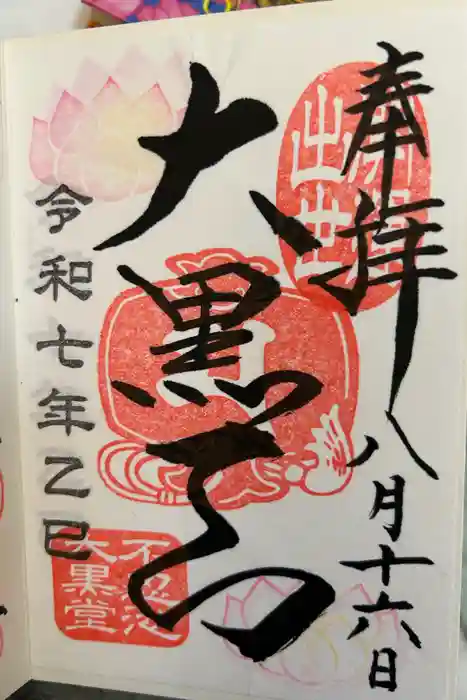 奉拝
八月十六日
出世
大黒天
令和七年乙巳
不忍池
大黒堂